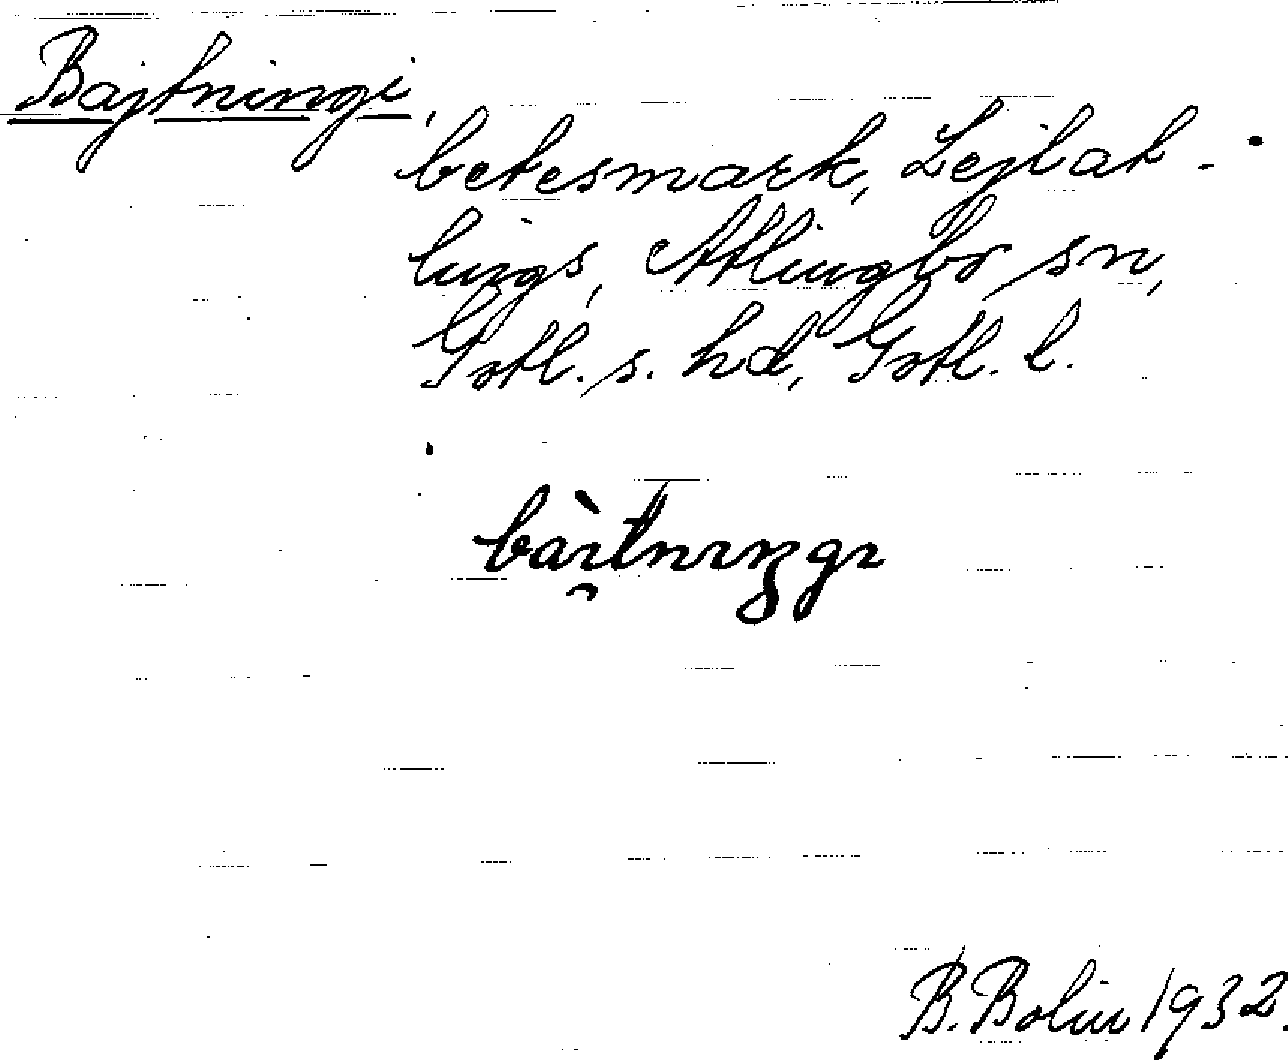 Bajtningi,
betesmark, Lejlat-
lings, Atlingbo sn,
Gotl. s. hd, Gotl. l.
bàɪ̯tnɪŋgɪ
B. Bolin 1932.